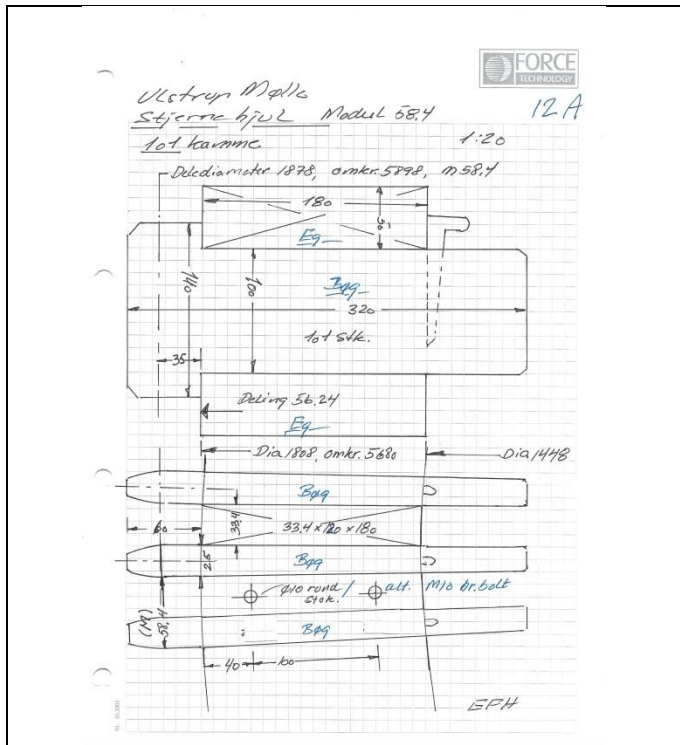 FORCE
TECHNOLOGY
12 A
Ulstrup Mølle
Stjerne hjul Modul 58,4
101 kamme 1:20
Delediameter 1878, omkr. 5898, m 58,4
180
50
Eg
140
100
Bøg
320
101 stk.
35
Deling 56.24
Eg
Dia 1808, omkr. 5680
Dia 1448
Bøg
33,4
60
33,4 x 120 x 180
25
Bøg
ø10 rund stok. / alt. M10 br.bolt
(M) 58,4
Bøg
40 100
EPH